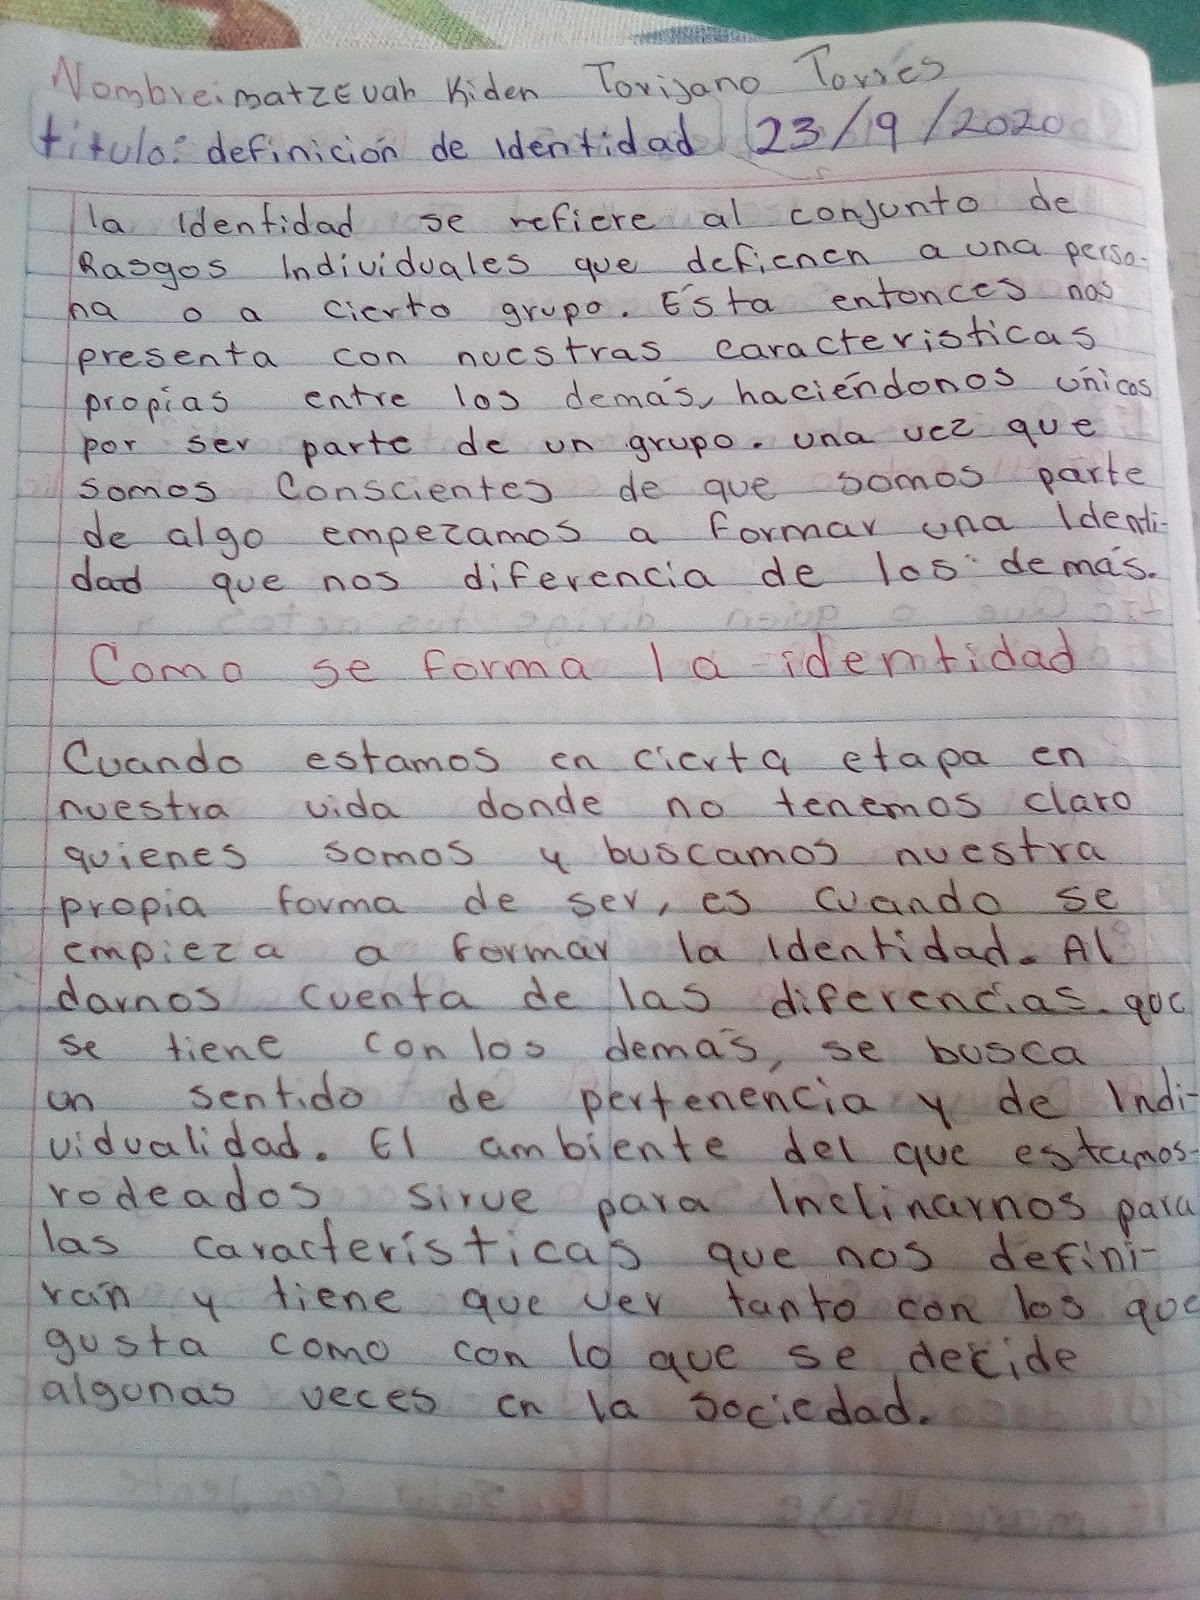 Nombre: matzevah Kiden Torijano Torres
titulo: definición de Identidad 23/9/2020
la Identidad se refiere al conjunto de
Rasgos Individuales que defienen a una perso-
na o a cierto grupo. Esta entonces nos
presenta con nuestras caracteristicas
propias entre los demás, haciéndonos únicos
por ser parte de un grupo. una vez que
somos Conscientes de que somos parte
de algo empezamos a formar una Identi-
dad que nos diferencia de los demás.
Como se forma la identidad
Cuando estamos en cierta etapa en
nuestra vida donde no tenemos claro
quienes somos y buscamos nuestra
propia forma de ser, es cuando se
empieza a formar la Identidad. Al
darnos cuenta de las diferencias que
se tiene con los demás, se busca
un sentido de pertenencia y de Indi-
vidualidad. El ambiente del que estamos
rodeados sirve para Inclinarnos para
las características que nos defini-
rán y tiene que ver tanto con los que
gusta como con lo que se decide
algunas veces en la sociedad.